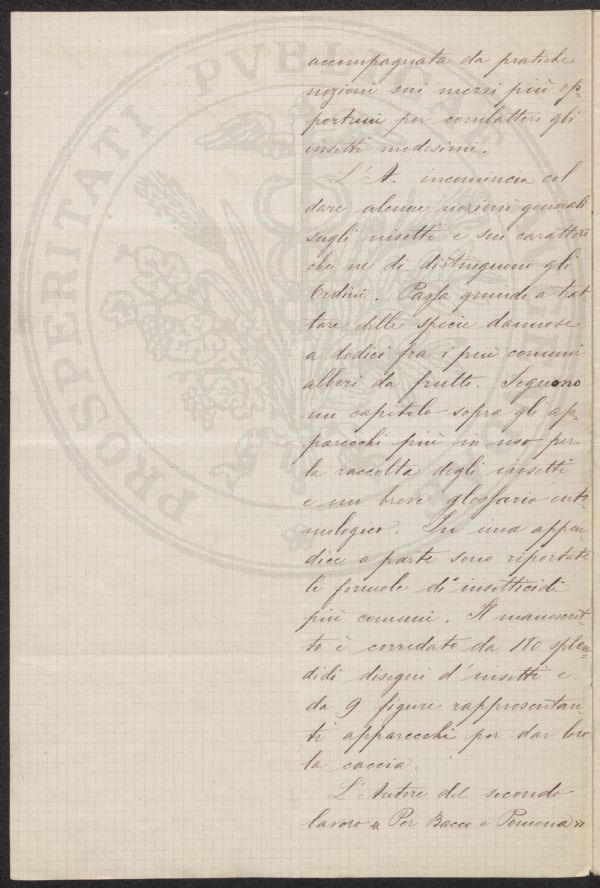 PROSPERITATI PVBLICAE
accompagnata da pratiche
nozioni sui mezzi più op-
portuni per combattere gli
insetti medesimi.
L'A. incomincia col
dare alcune nozioni generali
sugli insetti e sui caratteri
che ne di distinguono gli
Ordini. Passa quindi a trat-
tare delle specie dannose
a dodici fra i più comuni
alberi da frutto. Seguono
un capitolo sopra gli ap-
parecchi più in uso per
la raccolta degli insetti
e un breve glossario ento-
mologico. In una appen-
dice a parte sono riportate
le formole di insetticidi
più comuni. Il manoscrit-
to è corredato da 180 splen-
didi disegni d'insetti e
da 9 figure rappresentan-
ti apparecchi per dar loro
la caccia.
L'Autore del secondo
lavoro « Per Bacco e Pomona »